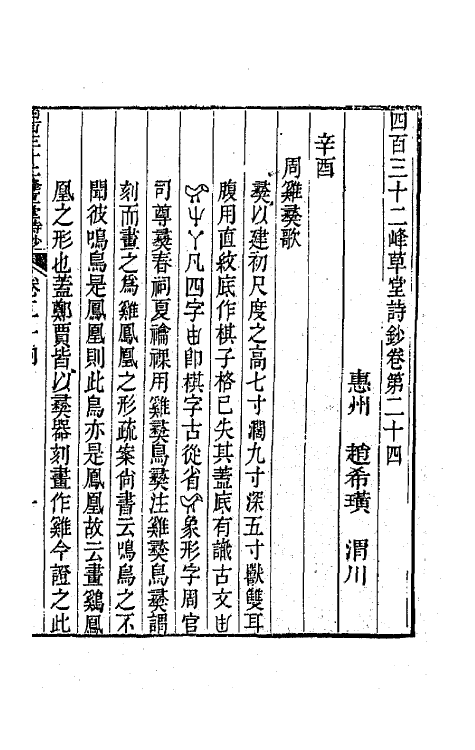 四百三十二峰草堂詩鈔卷第二十四
惠州　趙希璜　渭川
辛酉
周雞彝歌
彝以建初尺度之高七寸濶九寸深五寸獸雙耳
腹用直紋底作棋子格已失其蓋底有識古文
凡四字由卽棋字古從省象形字周官
司尊彝春祠夏禴祼用雞彝鳥彝注雞彝鳥彝謂
刻而畫之爲雞鳳凰之形疏案尚書云鳴鳥之不
聞彼鳴鳥是鳳凰則此鳥亦是鳳凰故云畫鷄鳳
凰之形也蓋鄭賈皆以彝器刻畫作雞今證之此
四百三十二峰草堂詩鈔　卷二十四　一